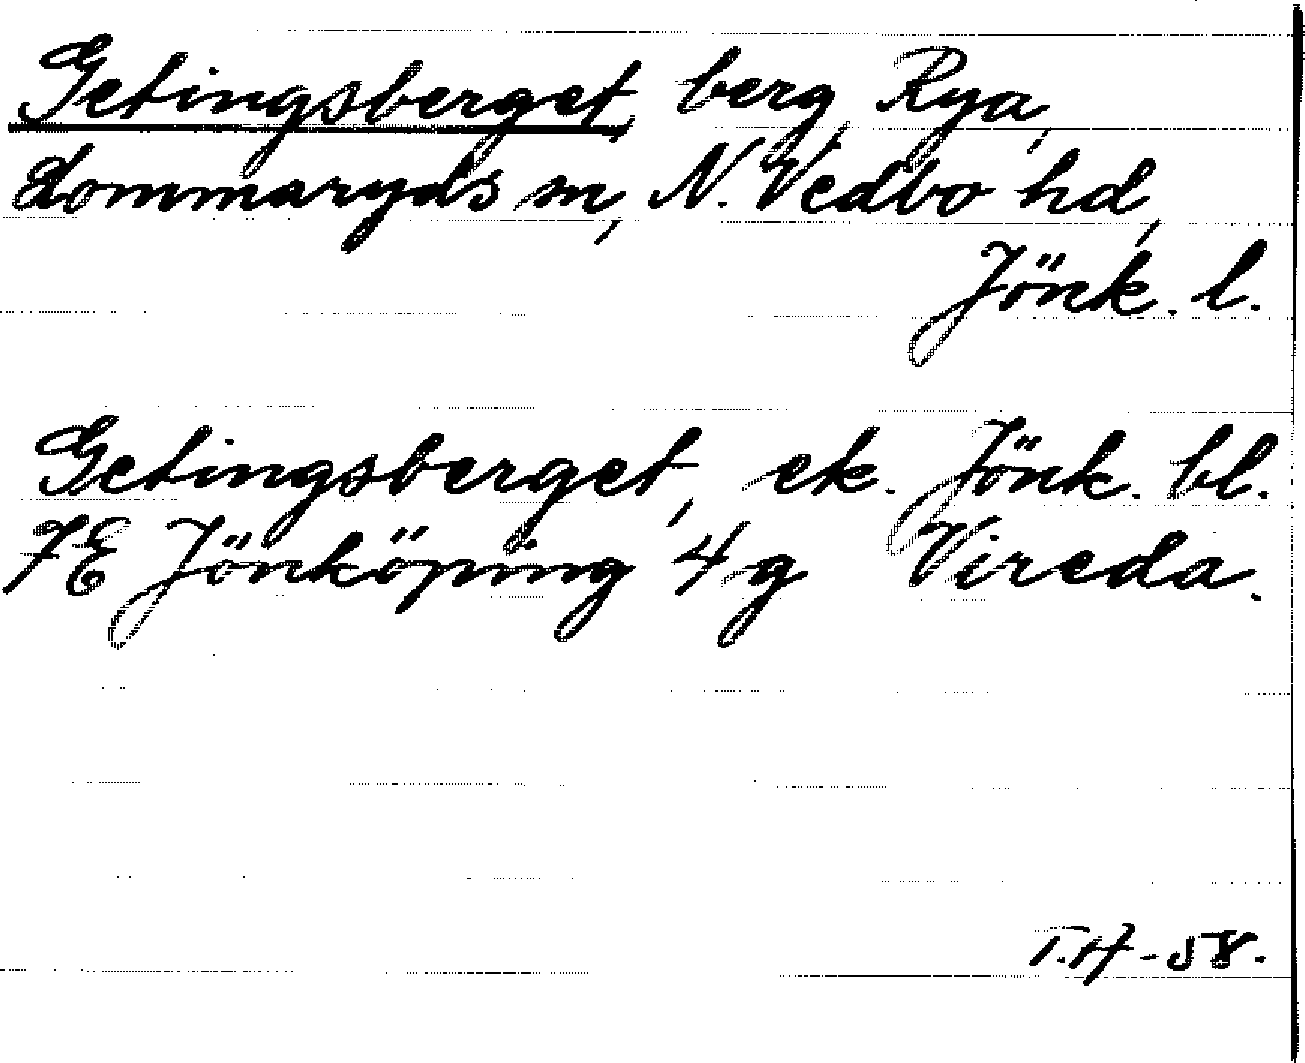 Getingsberget, berg, Rya,
Lommaryds sn, N. Vedbo hd,
Jönk. l.
Getingsberget, ek. Jönk. bl.
7E Jönköping 4 g Vireda.
T.H -58.